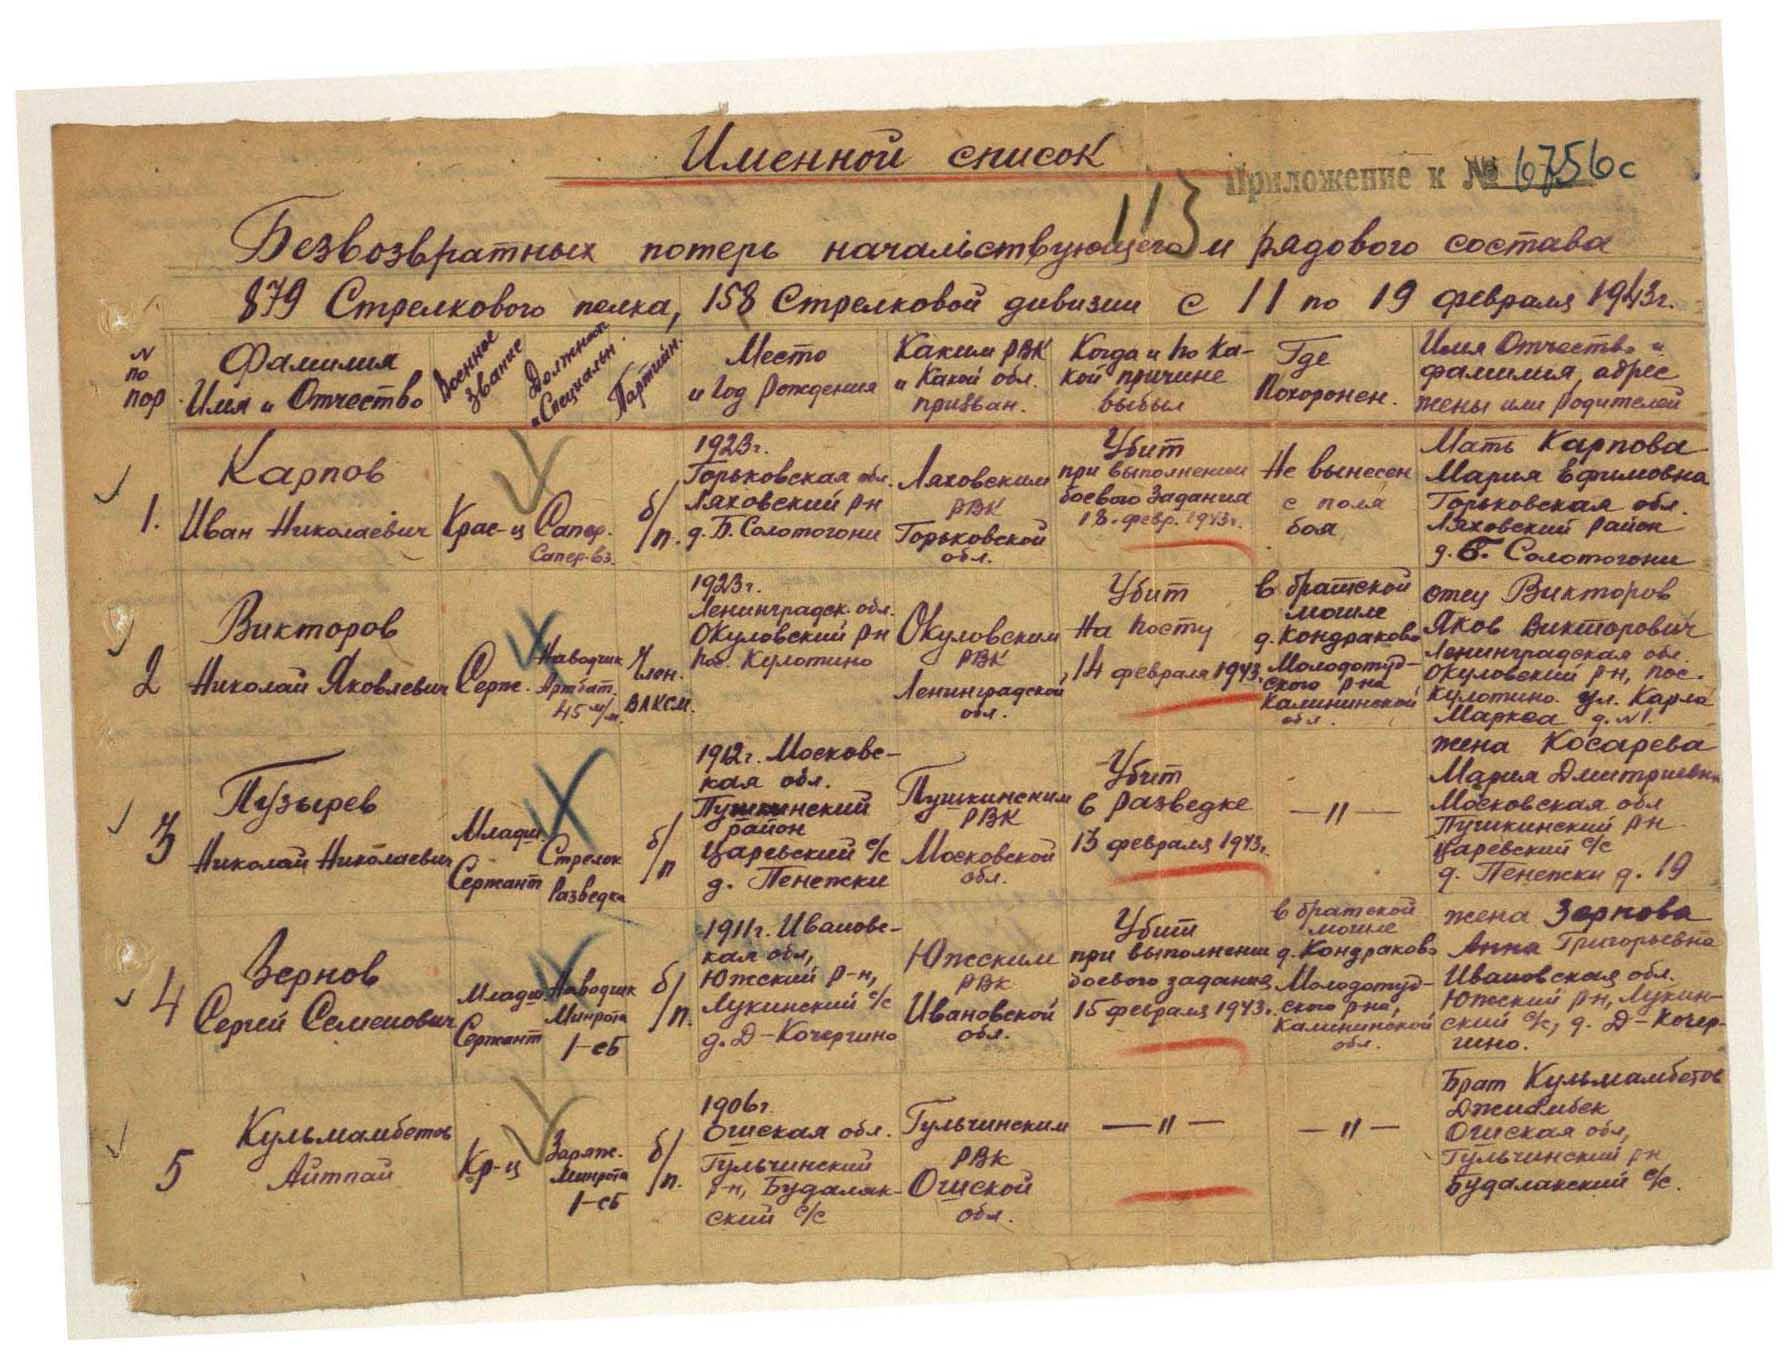 Именной список
Приложение к № 6756с
113
Безвозвратных потерь начальствующего и рядового состава
879 Стрелкового полка, 158 Стрелковой дивизии с 11 по 19 февраля 1943г.
№ по пор
Фамилия
Имя и Отчество
Военное
Звание
Должност.
и Специальн.
Партийн.
Место
и Год Рождения
Каким РВК
и Какой обл.
призван.
Когда и по Ка-
кой причине
выбыл
Где
Похоронен.
Имя Отчество и
фамилия, адрес
жены или родителей
1.
Карпов
Иван Николаевич
Крас-ц
Сапер.
Сапер-вз.
б/п.
1923г.
Горьковская обл.
Ляховский рн
д. Б. Солотогони
Ляховским
РВК
Горьковской
обл.
Убит
при выполнении
боевого задания
18. февр. 1943г.
Не вынесен
с поля
боя
Мать Карпова
Мария Ефимовна
Горьковская обл.
Ляховский район
д. Б. Солотогони
2
Викторов
Николай Яковлевич
Серж.
Наводчик
Артбат.
45 м/м.
Член.
ВЛКСМ.
1923г.
Ленинградск. обл.
Окуловский рн
пос. Кулотино
Окуловским
РВК
Ленинградской
обл.
Убит
на посту
14 февраля 1943г.
в братской
могиле
д. Кондраково
Молодотуд-
ского р-на
Калининской
обл.
отец Викторов
Яков Викторович
Ленинградская обл.
Окуловский рн, пос.
Кулотино ул. Карла
Маркса д. №1.
3
Пузырев
Николай Николаевич
Младш.
Сержант
Стрелок
Разведки
б/п
1912г. Московс-
кая обл.
Пушкинский
район
Царевский с/с
д. Пенежки
Пушкинским
РВК
Московской
обл.
Убит
в разведке
13 февраля 1943г.
—〃—
жена Косарева
Мария Дмитриевна
Московская обл
Пушкинский рн
Царевский с/с
д. Пенежки д. 19
4
Зернов
Сергей Семенович
Младш
Сержант
Наводчик
Минрота
1-сб
б/п.
1911г. Ивановс-
кая обл,
Южский р-н,
Лукинский с/с
д. Д-Кочергино
Южским
РВК
Ивановской
обл.
Убит
при выполнении
боевого задания
15 февраля 1943г.
в братской
могиле
д. Кондраково
Молодотуд-
ского р-на,
Калининской
обл.
жена Зернова
Анна Григорьевна
Ивановская обл.
Южский рн, Лукин-
ский с/с, д. Д-Кочер-
гино.
5
Кульмамбетов
Айтпай
Кр-ц
Заряж.
Минрота
1-сб
б/п.
1906г.
Ошская обл.
Гульчинский
р-н, Будаляк-
ский с/с
Гульчинским
РВК
Ошской
обл.
—〃—
—〃—
Брат Кульмамбетов
Ошская обл,
Гульчинский рн
Будалакский с/с.